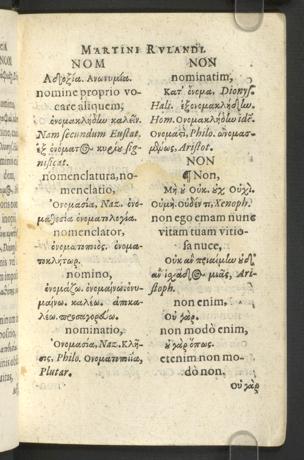 MARTINI RVLANDI
NOM
Ἀδοξία. Ἀνωνυμία.
nomine proprio vo-
care aliquem,
ὀνομακλήδων καλεῖν.
Nam secundum Eustat.
ἐξ ὀνόματος κυρίου sig-
nificat.
nomenclatura, no-
menclatio,
Ὀνομασία, Naz. ὀνο-
μαθεσία ὀνοματολογία.
nomenclator,
ὀνοματοποιός. ὀνομα-
τοκλήτωρ.
nomino,
ὀνομάζω. ὀνομαίνω. ὀνυ-
μαίνω. καλέω. ἀποκα-
λέω. προσαγορεύω.
nominatio,
Ὀνομασία, Naz. Κλῆ-
σις, Philo. Ὀνοματοποιία,
Plutar.
NON
nominatim,
Κατ' ὄνομα. Dionys.
Hali. ἐξονομακλήδων.
Hom. Ὀνομακλήδων idē.
Ὀνομαστὶ, Philo. ὠνομασ-
μένως, Aristot.
NON
¶ Non,
Μὴ οὐ Οὐκ. οὐχ Οὐχί.
Οὐμή. Οὐδέν τι, Xenoph.
non ego emam nunc
vitam tuam vitio-
sa nuce,
Οὐκ ἂν πριαίμην οὐδ'
ἂν ἰσχάδος μιᾶς, Ari-
stoph.
non enim,
Οὐ γάρ.
non modò enim,
οὐ γὰρ ὅπως.
etenim non mo-
dò non.
Οὐ γὰρ